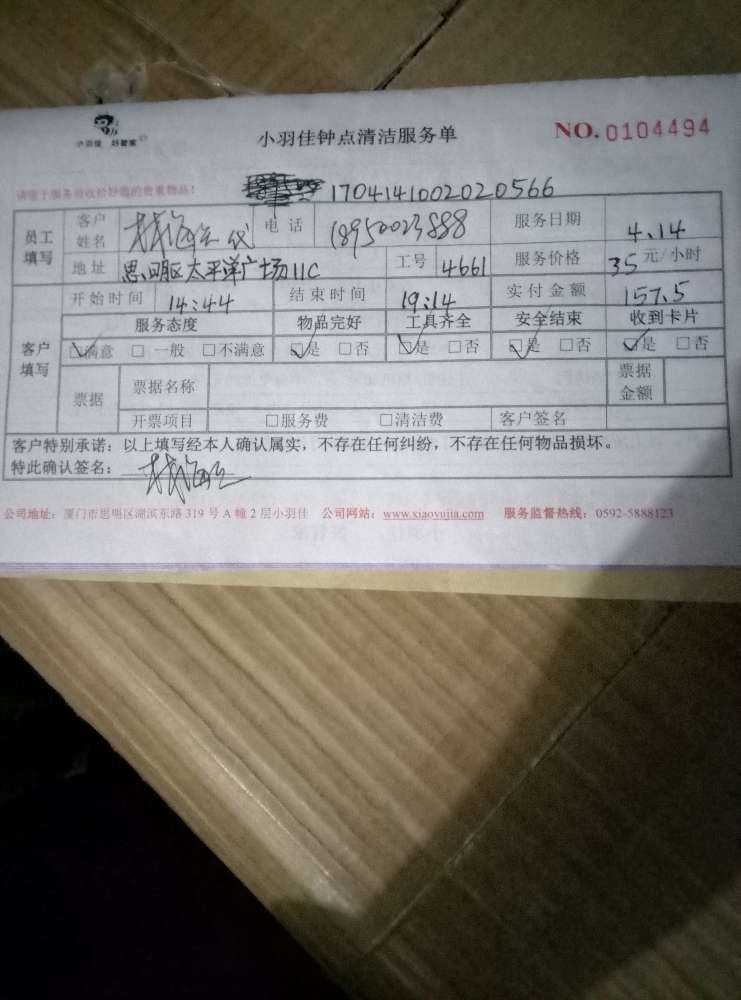 小羽佳 好管家
小羽佳钟点清洁服务单
NO. 0104494
请您于服务前收拾好您的贵重物品！
1704141002020566
员工填写 客户姓名 林海 代 电话 18950023888 服务日期 4.14
地址 思明区太平洋广场11C 工号 4661 服务价格 35 元/小时
客户填写 开始时间 14:44 结束时间 19:14 实付金额 157.5
服务态度 物品完好 工具齐全 安全结束 收到卡片
☑满意 □一般 □不满意 ☑是 □否 ☑是 □否 ☑是 □否 ☑是 □否
票据 票据名称 票据金额
开票项目 □服务费 □清洁费 客户签名
客户特别承诺：以上填写经本人确认属实，不存在任何纠纷，不存在任何物品损坏。
特此确认签名： 林海
公司地址：厦门市思明区湖滨东路319号A幢2层小羽佳 公司网站：www.xiaoyujia.com 服务监督热线：0592-5888123